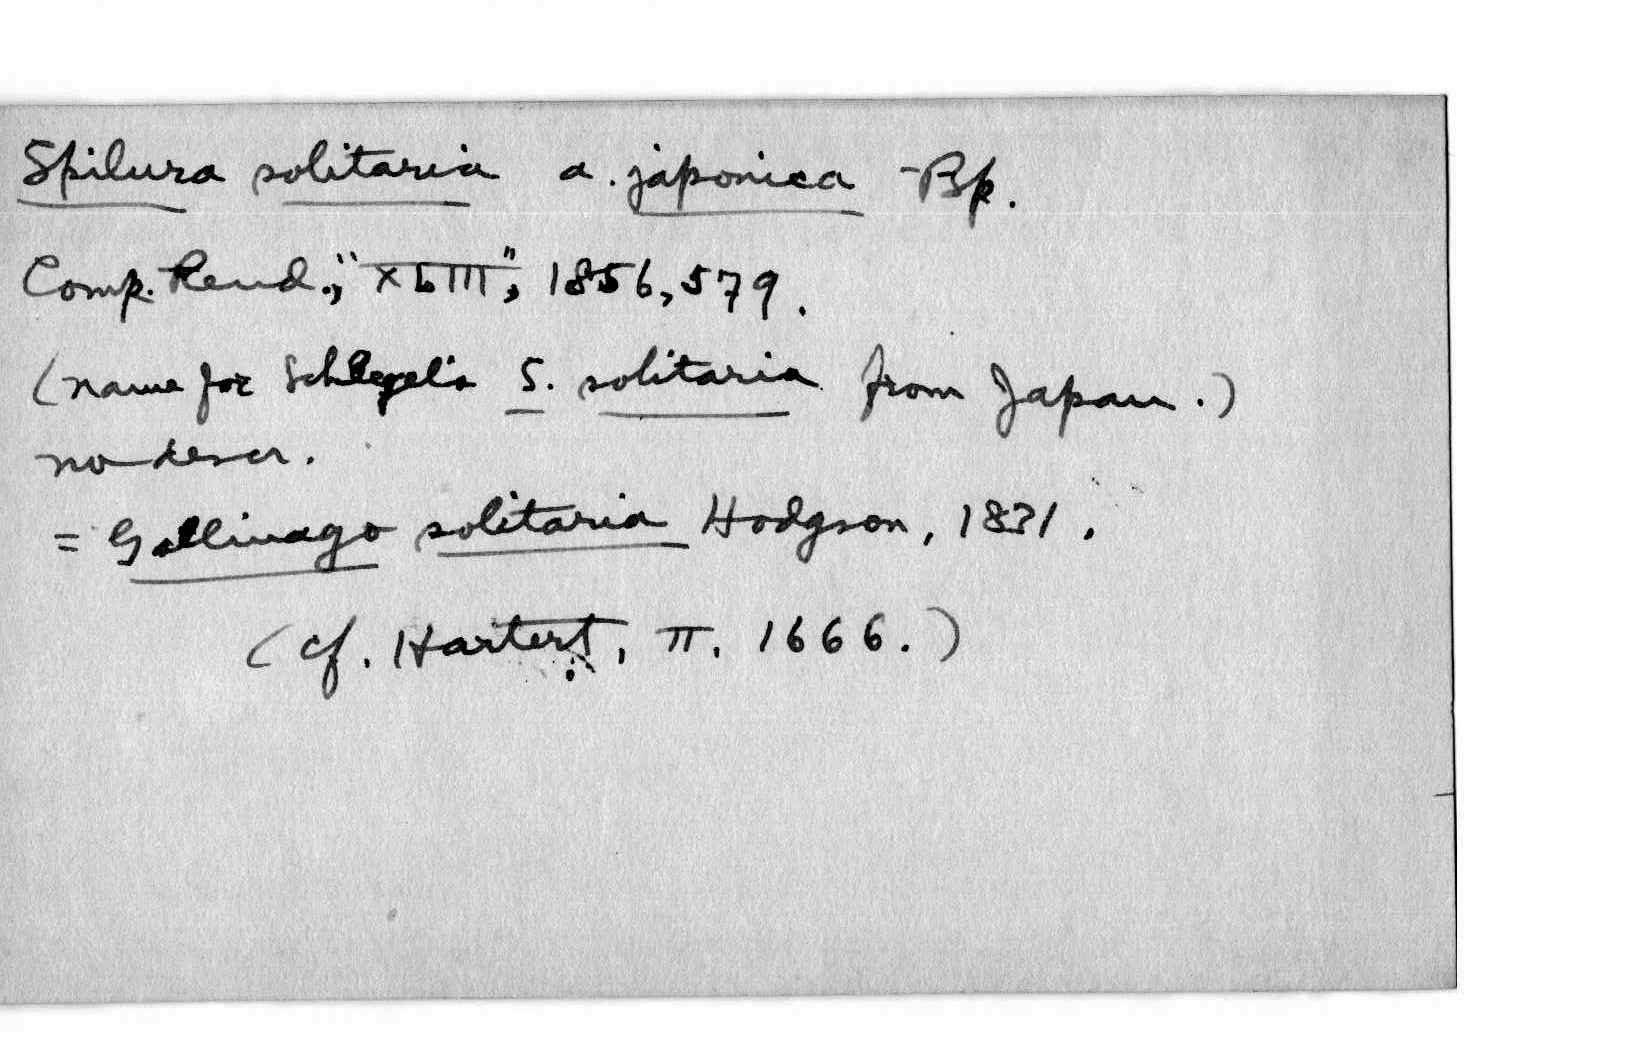 Spilura solitaria a. japonica Bp.
Comp. Rend., "XLIII", 1856, 579.
(name for Schlegel's S. solitaria from Japan.)
no descr.
= Gallinago solitaria Hodgson, 1831.
(cf. Hartert, II, 1666.)